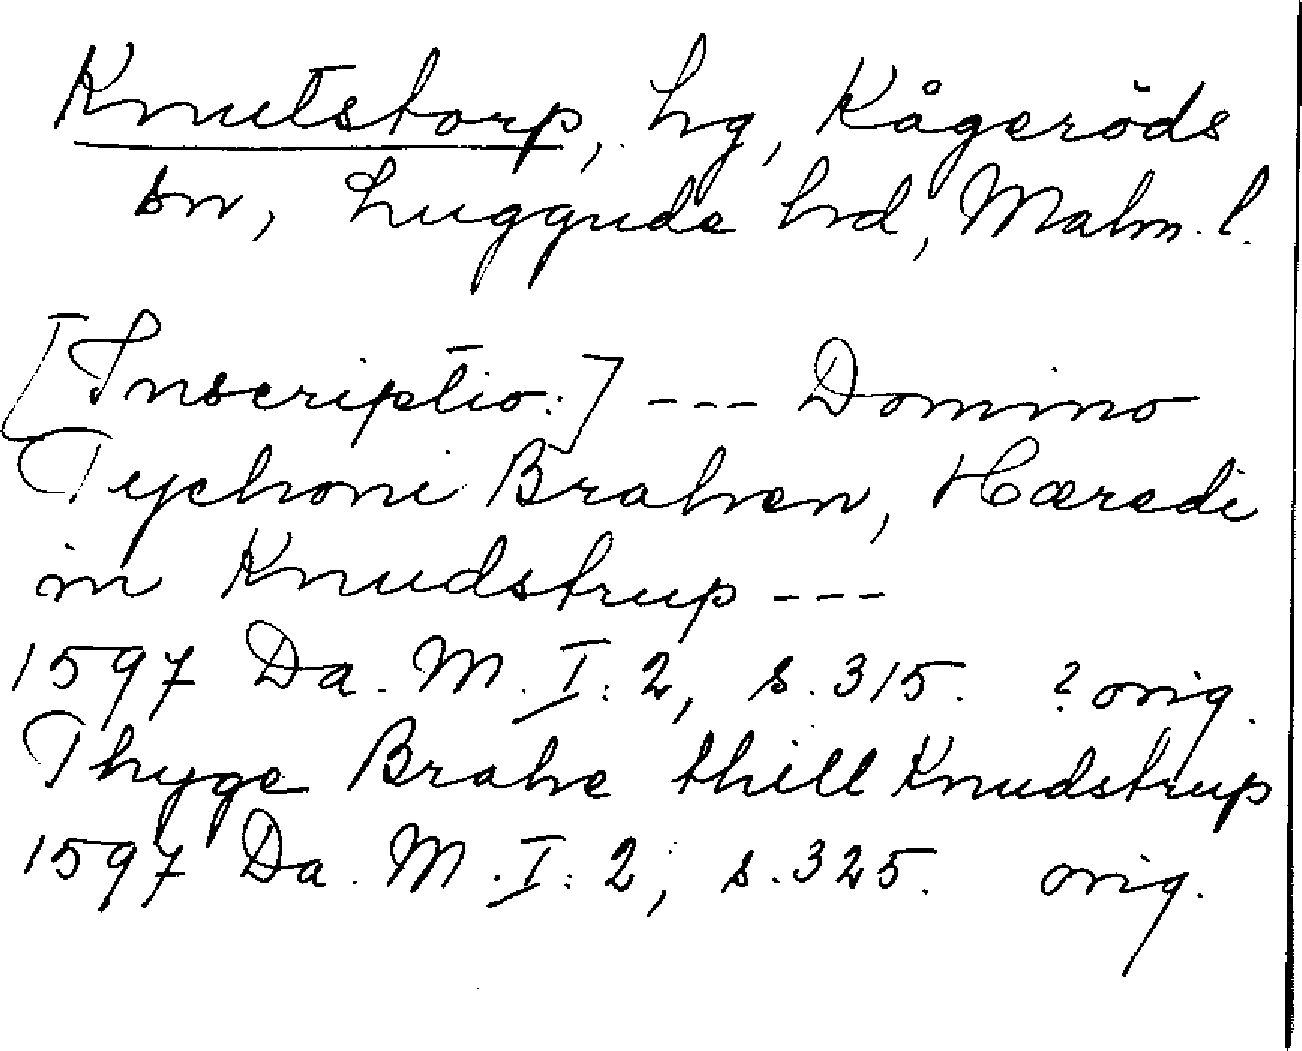 Knutstorp, hg, Kågeröds
sn, Luggude hd, Malm. l.
[Inscriptio:] --- Domino
Tychoni Brahen, Hæredi
in Knudstrup ---
1597 Da. M. I: 2, s. 315. ? orig.
Thyge Brahe thill Knudstrup
1597 Da. M. I: 2, s. 325. orig.